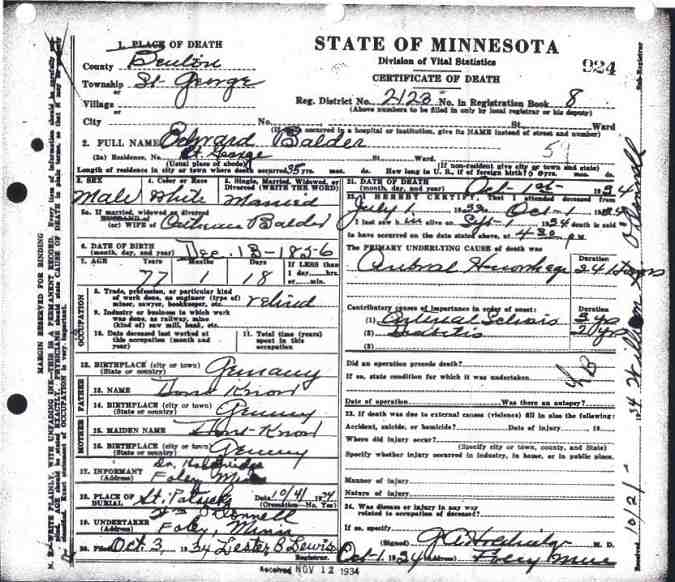 STATE OF MINNESOTA
Division of Vital Statistics
CERTIFICATE OF DEATH
924
1. PLACE OF DEATH
County Benton
Township St. George
Village
City
Reg. District No. 2123 No. in Registration Book 8
(Above numbers to be filled in only by local registrar or his deputy)
St. Ward
(If occurred in a hospital or institution, give its NAME instead of street and number)
2. FULL NAME Edward Balder
(2a) Residence, No. St. George St. Ward
(Usual place of abode) (If non-resident give city or town and state)
Length of residence in city or town where death occurred 35 yrs. mos. ds. How long in U. S., if of foreign birth? yrs. mos. ds.
3. SEX 4. Color or Race 5. Single, Married, Widowed, or Divorced (WRITE THE WORD)
Male White Married
5a. If married, widowed or divorced
HUSBAND of
(or) WIFE of Balder
6. DATE OF BIRTH
(month, day, and year) Dec. 13 - 1856
7. AGE Years Months Days If LESS than
1 day, hrs.
or min.
77 18
OCCUPATION
8. Trade, profession, or particular kind
of work done, as engineer (type of)
miner, sawyer, bookkeeper, etc. retired
9. Industry or business in which work
was done, as railway, mine
(kind of) saw mill, bank, etc.
10. Date deceased last worked at
this occupation (month and
year)
11. Total time (years)
spent in this
occupation
12. BIRTHPLACE (city or town)
(State or country) Germany
FATHER
13. NAME Dont Know
14. BIRTHPLACE (city or town)
(State or country) Germany
MOTHER
15. MAIDEN NAME Dont Know
16. BIRTHPLACE (city or town)
(State or country) Germany
17. INFORMANT Dr.
(Address) Foley Minn
18. PLACE OF
BURIAL St. Patricks Date 10/4/ 1934
(Cremation No. Year)
19. UNDERTAKER O'Donnell
(Address) Foley, Minn
20. Filed Oct. 3, 1934 Lester B Lewis
21. DATE OF DEATH
(month, day, and year) Oct - 1st - 1934
22. I HEREBY CERTIFY, That I attended deceased from
July 1 1933 Oct - 1 1934
I last saw h alive on 1934 death is said
to have occurred on the date stated above, at 4:30 P.M.
The PRIMARY UNDERLYING CAUSE of death was Duration
Cerebral Hemorrhage 24 Hours
Contributory causes of importance in order of onset: Duration
(1) 3 yrs
(2)
Did an operation precede death?
If so, state condition for which it was undertaken
Date of operation Was there an autopsy?
23. If death was due to external causes (violence) fill in also the following:
Accident, suicide, or homicide? Date of injury 19
Where did injury occur?
(Specify city or town, county, and State)
Specify whether injury occurred in industry, in home, or in public place.
Manner of injury
Nature of injury
24. Was disease or injury in any way
related to occupation of deceased?
If so, specify
(Signed) M. D.
Oct 1, 1934 (Address) Foley Minn
Received NOV 12 1934
MARGIN RESERVED FOR BINDING